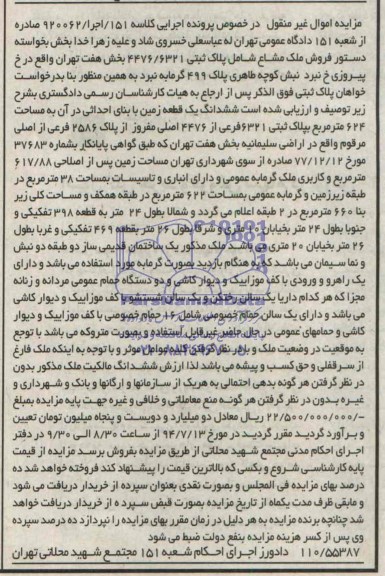 مزایده اموال غیر منقول در خصوص پرونده اجرایی کلاسه ۱۵۱/اجرا/۹۲۰۰۶۲ صادره
از شعبه ۱۵۱ دادگاه عمومی تهران له عباسعلی خسروی شاد و علیه زهرا خدا بخش بخواسته
دستور فروش ملک مشاع شامل پلاک ثبتی ۴۴۷۶/۶۳۲۱ بخش هفت تهران واقع در خ
پیروزی خ نبرد نبش کوچه طاهری پلاک ۴۹۹ گرمابه نبرد به همین منظور بنا بدرخواست
خواهان پلاک ثبتی فوق الذکر پس از ارجاع به هیات کارشناسان رسمی دادگستری بشرح
زیر توصیف و ارزیابی شده است ششدانگ یک قطعه زمین با بنای احداثی در آن به مساحت
۶۲۴ مترمربع بپلاک ثبتی ۶۳۲۱فرعی از ۴۴۷۶ اصلی مفروز از پلاک ۲۵۸۶ فرعی از اصلی
مرقوم واقع در اراضی سلیمانیه بخش هفت تهران که طبق گواهی پایانکار بشماره ۳۷۶۸۳
مورخ ۷۷/۱۲/۱۲ صادره از سوی شهرداری تهران مساحت زمین پس از اصلاحی ۶۱۷/۸۸
مترمربع و کاربری ملک گرمابه عمومی و دارای انباری و تاسیسات بمساحت ۳۸ مترمربع در
طبقه زیرزمین و گرمابه عمومی بمساحت ۶۲۲ مترمربع در طبقه همکف و مساحت کلی زیر
بنا ۶۶۰ مترمربع در ۲ طبقه اعلام می گردد و شمالا بطول ۲۴ متر به قطعه ۳۹۸ تفکیکی و
جنوبا بطول ۲۴ متر بخیابان ۱۰ متری و شرقا بطول ۲۶ متر بقطعه ۴۶۹ تفکیکی و غربا بطول
۲۶ متر بخیابان ۲۰ متری می باشد. ملک مذکور یک ساختمان قدیمی ساز دو طبقه دو نبش
و نما سیمان می باشد که به هنگام بازدید بصورت گرمابه مورد استفاده می باشد و دارای
یک راهرو و ورودی با کف موزاییک و دیوار کاشی و دو دستگاه حمام عمومی مردانه و زنانه
مجزا که هر کدام دارا یک سالن رختکن و یک سالن شستشو با کف موزاییک و دیوار کاشی
می باشد و دارای یک سالن حمام خصوصی شامل ۱۶ حمام خصوصی با کف موزاییک و دیوار
کاشی و حمامهای عمومی در حال حاضر غیرقابل استفاده و بصورت متروکه می باشد با توجع
به موقعیت در وضعیت ملک و با در نظر گرفتن کلیه عوامل موثر و با توجه به اینکه ملک فارغ
از سرقفلی و حق کسب و پیشه می باشد لذا ارزش ششدانگ مالکیت ملک مذکور بدون
در نظر گرفتن هر گونه بدهی احتمالی به هریک از سازمانها و ارگانها و بانک و شهرداری و
غیره بدون در نظر گرفتن هر گونه منع معاملاتی و خلافی و غیره جهت پایه مزایده بمبلغ
۲۲/۵۰۰/۰۰۰/۰۰۰/- ریال معادل دو میلیارد و دویست و پنجاه میلیون تومان تعیین
و برآورد گردید مقرر گردید در مورخ ۹۴/۷/۱۳ از ساعت ۸/۳۰ الی ۹/۳۰ در دفتر
اجرای احکام مدنی مجتمع شهید محلاتی از طریق مزایده بفروش برسد مزایده از قیمت
پایه کارشناسی شروع و بکسی که بالاترین قیمت را پیشنهاد کند فروخته خواهد شد ده
درصد بهای مزایده فی المجلس و بصورت نقدی بعنوان سپرده از خریدار دریافت می شود
و مابقی ظرف مدت یکماه از تاریخ مزایده بصورت قبض سپرده از خریدار دریافت خواهد
شد چنانچه برنده مزایده به هر دلیل در زمان مقرر بهای مزایده را نپردازد ده درصد سپرده
وی پس از کسر هزینه مزایده بنفع دولت ضبط می شود
۱۱۰/۵۵۳۸۷ دادورز اجرای احکام شعبه ۱۵۱ مجتمع شهید محلاتی تهران